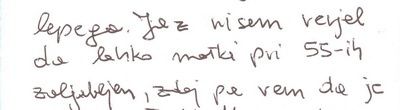 lepega. Jaz nisem verjel
da lahko moški pri 55-ih
zaljubljen, zdaj pa vem da je